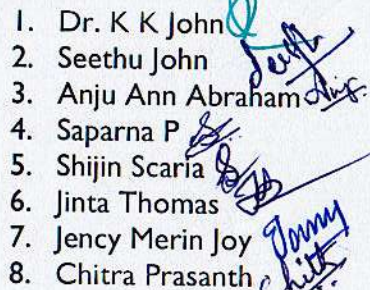 1. Dr. K K John
2. Seethu John
3. Anju Ann Abraham
4. Saparna P
5. Shijin Scaria
6. Jinta Thomas
7. Jency Merin Joy
8. Chitra Prasanth